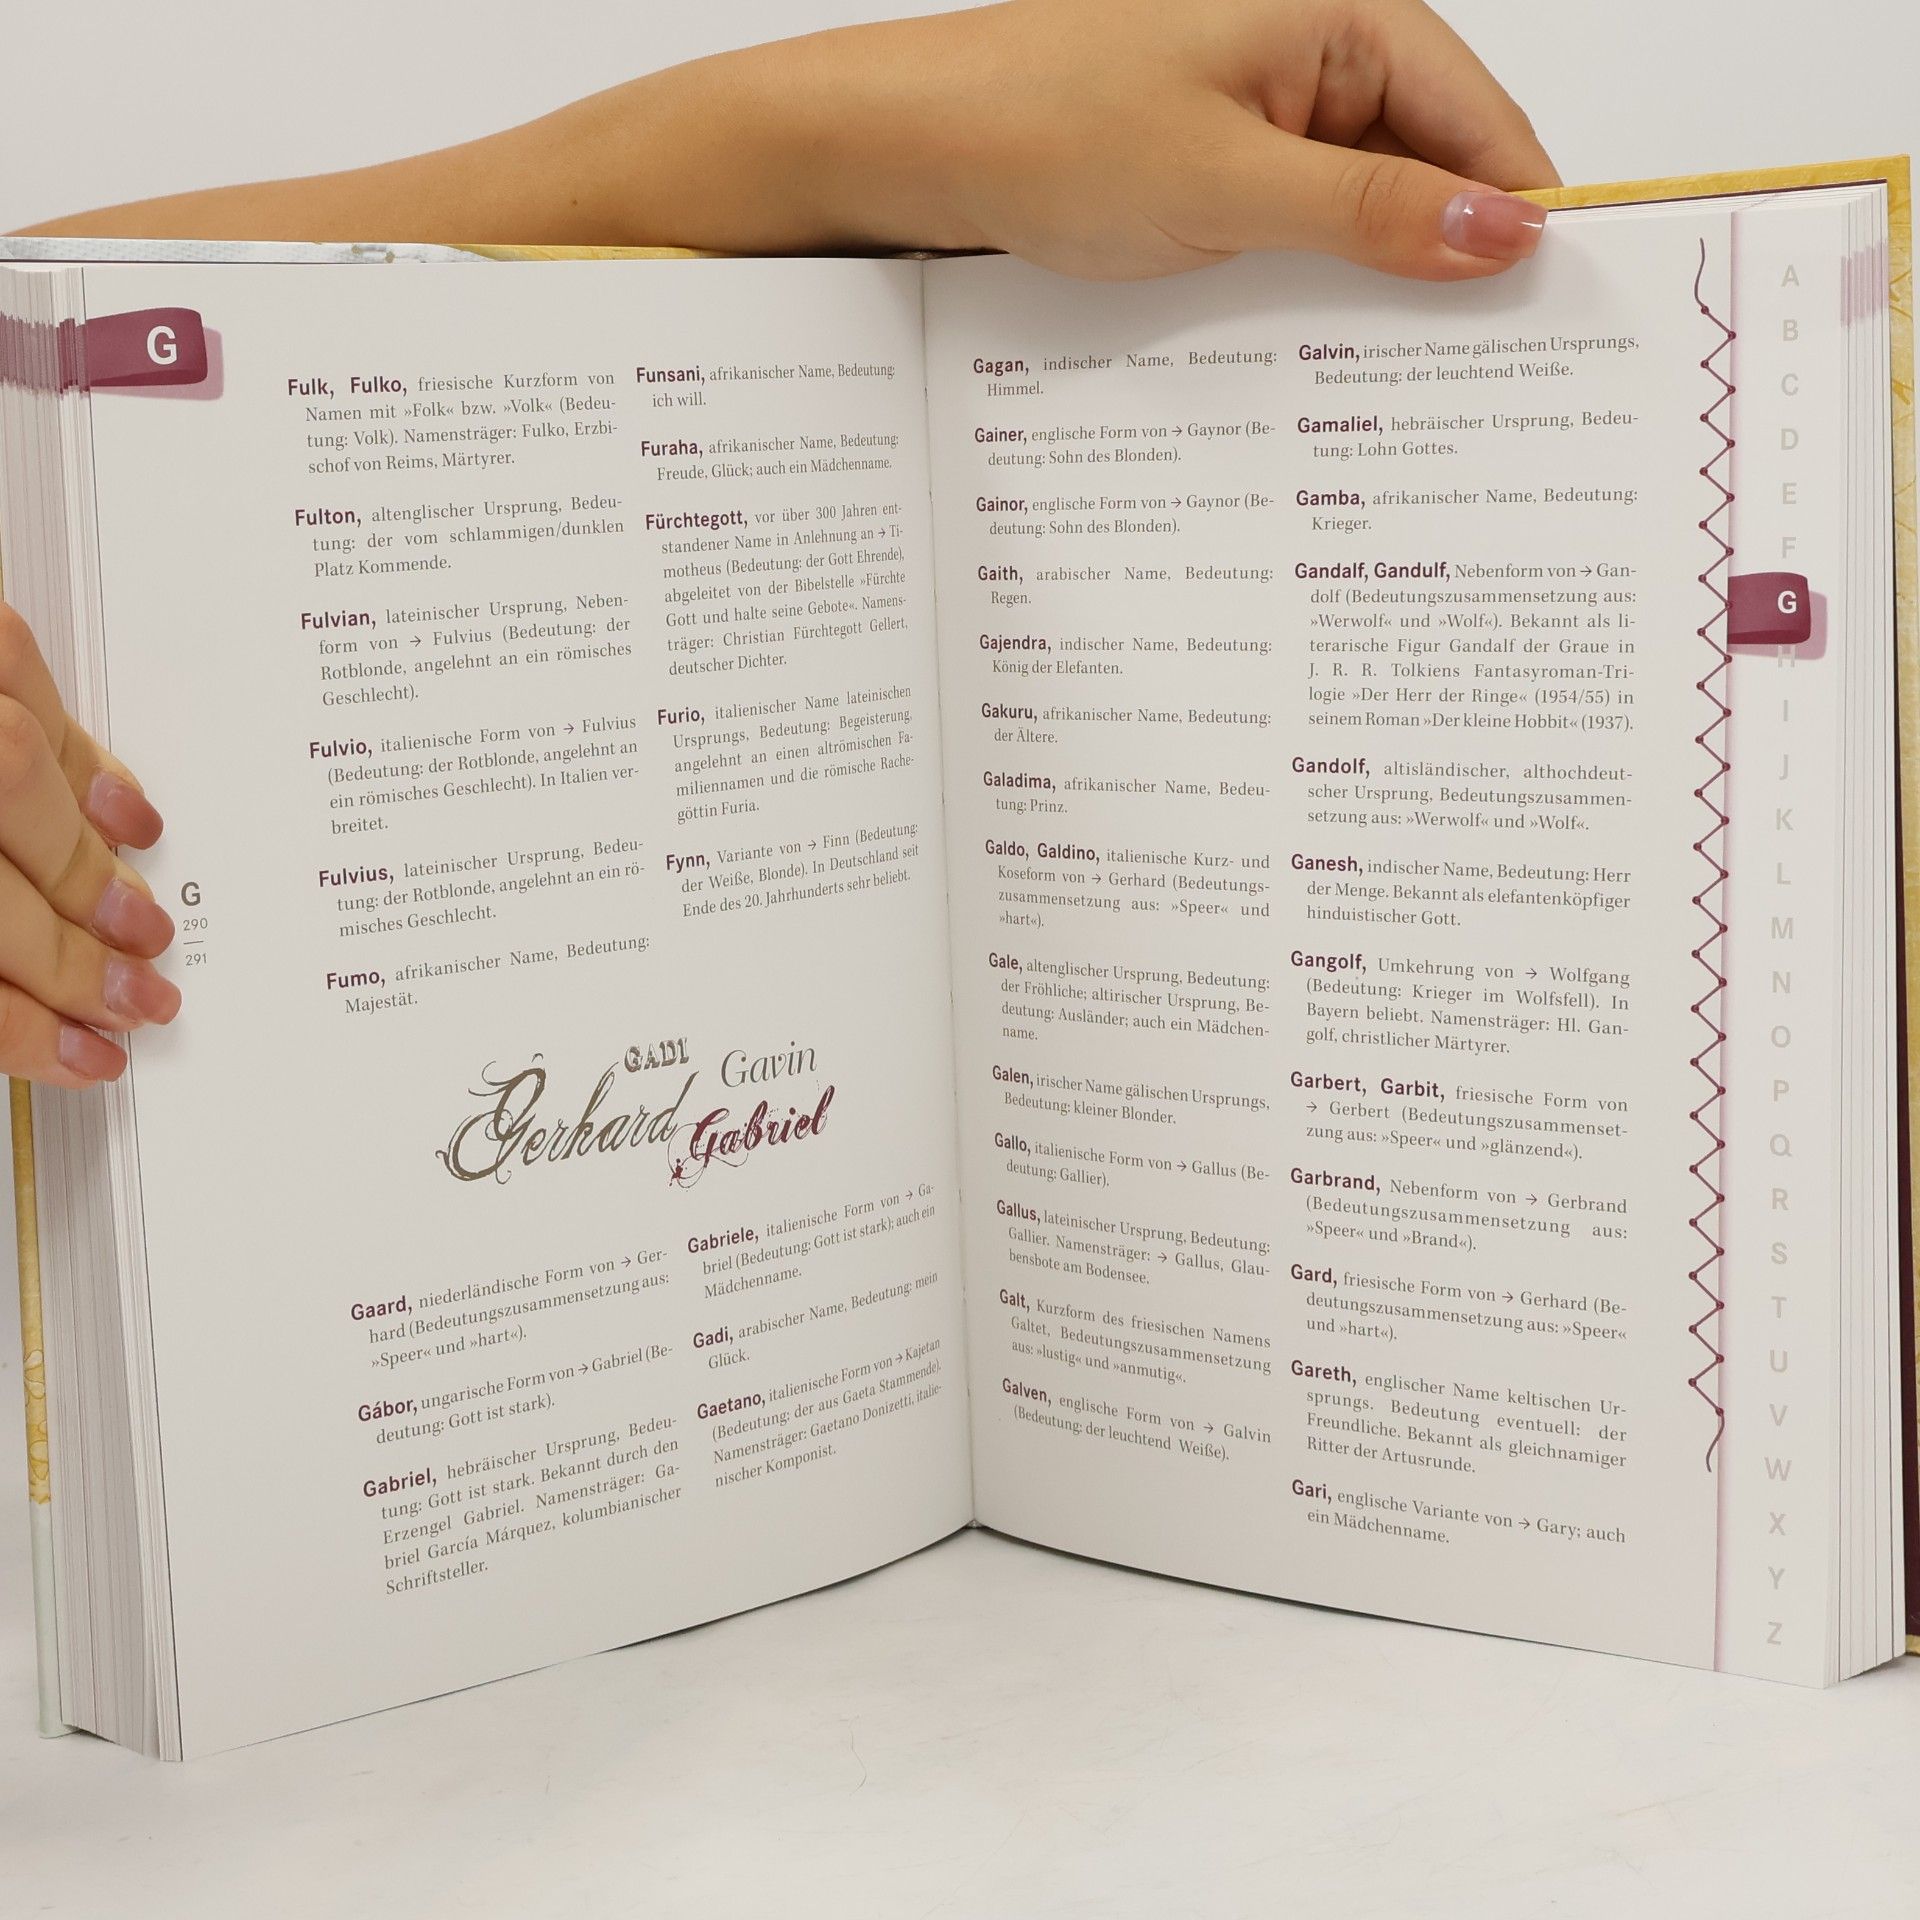 G
Fulk, Fulko, friesische Kurzform von
Namen mit »Folk« bzw. »Volk« (Bedeu-
tung: Volk). Namensträger: Fulko, Erzbi-
schof von Reims, Märtyrer.
Fulton, altenglischer Ursprung, Bedeu-
tung: der vom schlammigen/dunklen
Platz Kommende.
Fulvian, lateinischer Ursprung, Neben-
form von → Fulvius (Bedeutung: der
Rotblonde, angelehnt an ein römisches
Geschlecht).
Fulvio, italienische Form von → Fulvius
(Bedeutung: der Rotblonde, angelehnt an
ein römisches Geschlecht). In Italien ver-
breitet.
Fulvius, lateinischer Ursprung, Bedeu-
tung: der Rotblonde, angelehnt an ein rö-
misches Geschlecht.
Fumo, afrikanischer Name, Bedeutung:
Majestät.
Funsani, afrikanischer Name, Bedeutung:
ich will.
Furaha, afrikanischer Name, Bedeutung:
Freude, Glück; auch ein Mädchenname.
Fürchtegott, vor über 300 Jahren ent-
standener Name in Anlehnung an → Ti-
motheus (Bedeutung: der Gott Ehrende),
abgeleitet von der Bibelstelle »Fürchte
Gott und halte seine Gebote«. Namens-
träger: Christian Fürchtegott Gellert,
deutscher Dichter.
Furio, italienischer Name lateinischen
Ursprungs, Bedeutung: Begeisterung,
angelehnt an einen altrömischen Fa-
miliennamen und die römische Rache-
göttin Furia.
Fynn, Variante von → Finn (Bedeutung:
der Weiße, Blonde). In Deutschland seit
Ende des 20. Jahrhunderts sehr beliebt.
G
290
291
GADI
Gavin
Gerhard
Gabriel
Gaard, niederländische Form von → Ger-
hard (Bedeutungszusammensetzung aus:
»Speer« und »hart«).
Gábor, ungarische Form von → Gabriel (Be-
deutung: Gott ist stark).
Gabriel, hebräischer Ursprung, Bedeu-
tung: Gott ist stark. Bekannt durch den
Erzengel Gabriel. Namensträger: Ga-
briel García Márquez, kolumbianischer
Schriftsteller.
Gabriele, italienische Form von → Ga-
briel (Bedeutung: Gott ist stark); auch ein
Mädchenname.
Gadi, arabischer Name, Bedeutung: mein
Glück.
Gaetano, italienische Form von → Kajetan
(Bedeutung: der aus Gaeta Stammende).
Namensträger: Gaetano Donizetti, italie-
nischer Komponist.
Gagan, indischer Name, Bedeutung:
Himmel.
Gainer, englische Form von → Gaynor (Be-
deutung: Sohn des Blonden).
Gainor, englische Form von → Gaynor (Be-
deutung: Sohn des Blonden).
Gaith, arabischer Name, Bedeutung:
Regen.
Gajendra, indischer Name, Bedeutung:
König der Elefanten.
Gakuru, afrikanischer Name, Bedeutung:
der Ältere.
Galadima, afrikanischer Name, Bedeu-
tung: Prinz.
Galdo, Galdino, italienische Kurz- und
Koseform von → Gerhard (Bedeutungs-
zusammensetzung aus: »Speer« und
»hart«).
Gale, altenglischer Ursprung, Bedeutung:
der Fröhliche; altirischer Ursprung, Be-
deutung: Ausländer; auch ein Mädchen-
name.
Galen, irischer Name gälischen Ursprungs,
Bedeutung: kleiner Blonder.
Gallo, italienische Form von → Gallus (Be-
deutung: Gallier).
Gallus, lateinischer Ursprung, Bedeutung:
Gallier. Namensträger: → Gallus, Glau-
bensbote am Bodensee.
Galt, Kurzform des friesischen Namens
Galtet, Bedeutungszusammensetzung
aus: »lustig« und »anmutig«.
Galven, englische Form von → Galvin
(Bedeutung: der leuchtend Weiße).
Galvin, irischer Name gälischen Ursprungs,
Bedeutung: der leuchtend Weiße.
Gamaliel, hebräischer Ursprung, Bedeu-
tung: Lohn Gottes.
Gamba, afrikanischer Name, Bedeutung:
Krieger.
Gandalf, Gandulf, Nebenform von → Gan-
dolf (Bedeutungszusammensetzung aus:
»Werwolf« und »Wolf«). Bekannt als li-
terarische Figur Gandalf der Graue in
J. R. R. Tolkiens Fantasyroman-Tri-
logie »Der Herr der Ringe« (1954/55) in
seinem Roman »Der kleine Hobbit« (1937).
Gandolf, altisländischer, althochdeut-
scher Ursprung, Bedeutungszusammen-
setzung aus: »Werwolf« und »Wolf«.
Ganesh, indischer Name, Bedeutung: Herr
der Menge. Bekannt als elefantenköpfiger
hinduistischer Gott.
Gangolf, Umkehrung von → Wolfgang
(Bedeutung: Krieger im Wolfsfell). In
Bayern beliebt. Namensträger: Hl. Gan-
golf, christlicher Märtyrer.
Garbert, Garbit, friesische Form von
→ Gerbert (Bedeutungszusammenset-
zung aus: »Speer« und »glänzend«).
Garbrand, Nebenform von → Gerbrand
(Bedeutungszusammensetzung aus:
»Speer« und »Brand«).
Gard, friesische Form von → Gerhard (Be-
deutungszusammensetzung aus: »Speer«
und »hart«).
Gareth, englischer Name keltischen Ur-
sprungs. Bedeutung eventuell: der
Freundliche. Bekannt als gleichnamiger
Ritter der Artusrunde.
Gari, englische Variante von → Gary; auch
ein Mädchenname.
A
B
C
D
E
F
G
H
I
J
K
L
M
N
O
P
Q
R
S
T
U
V
W
X
Y
Z